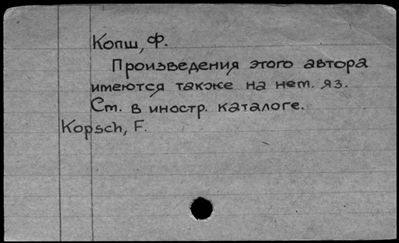 Копш, Ф.
Произведения этого автора
имеются также на нем. яз.
См. в иностр. каталоге.
Kopsch, F.